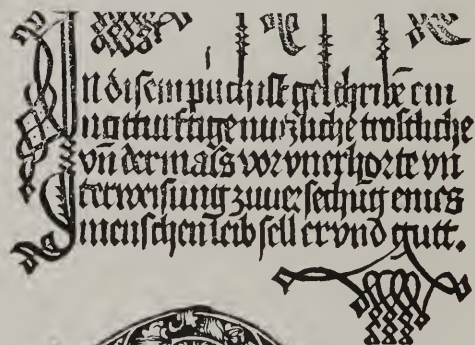 In disem puch ist geschribē ein
notturftige nutzliche trostliche
vn̄ der mass vor vnerhorte vn
terweisung zuuersechūg eines
menschen leib sell er vnd gutt.